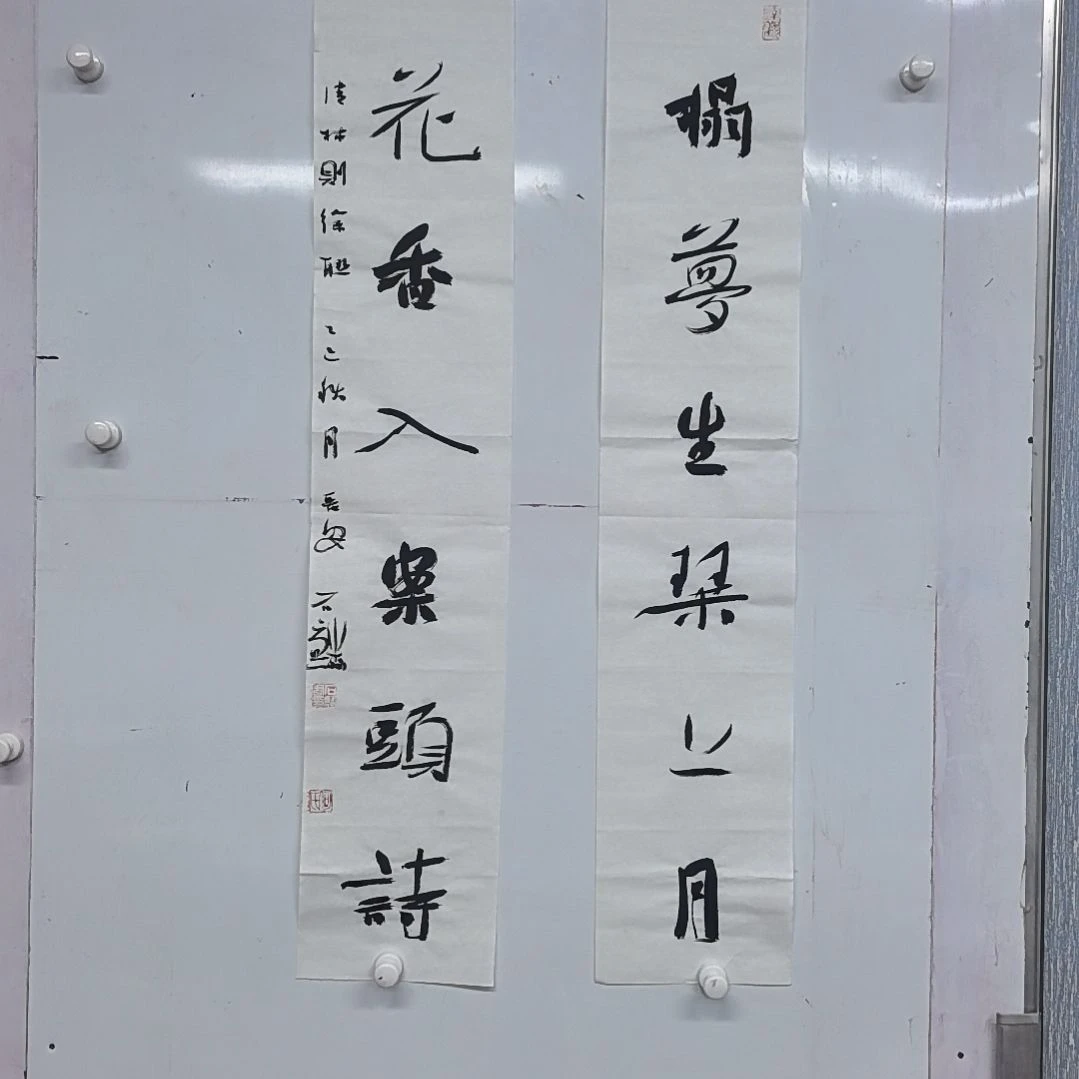 榻夢生琴上月
花香入案頭詩
清林則徐聯 乙巳秋月 長安 石